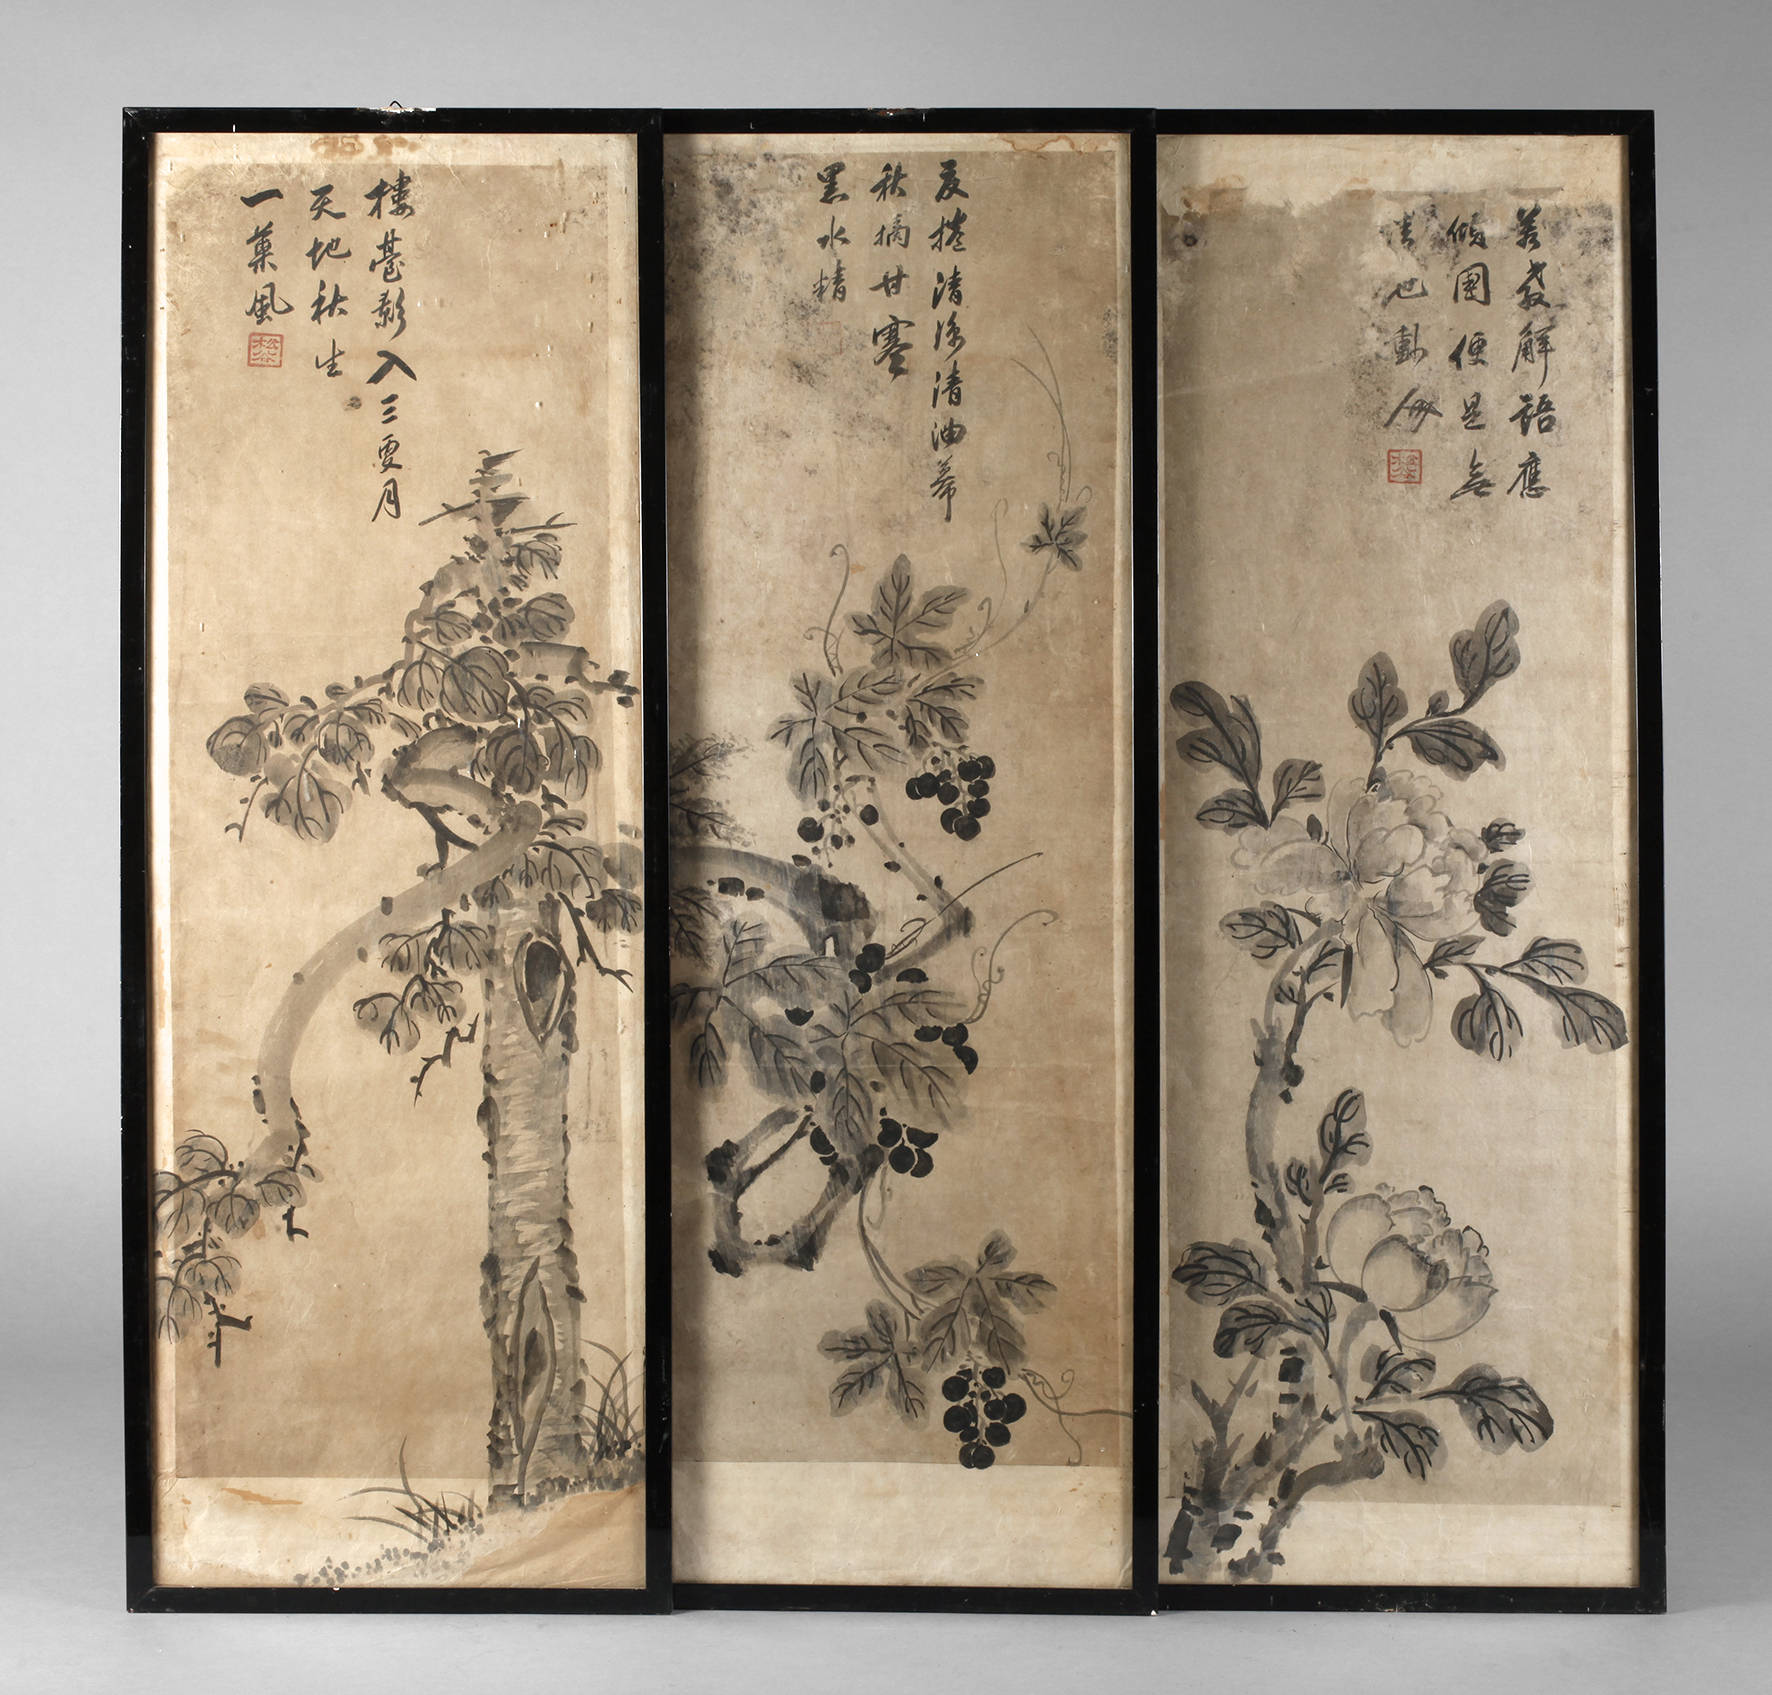 若教解語應
傾國便是無
情也動人
夏捲清陰清油幕
秋摘甘寒
黑水精
樓臺影入三更月
天地秋生
一葉風
松谷